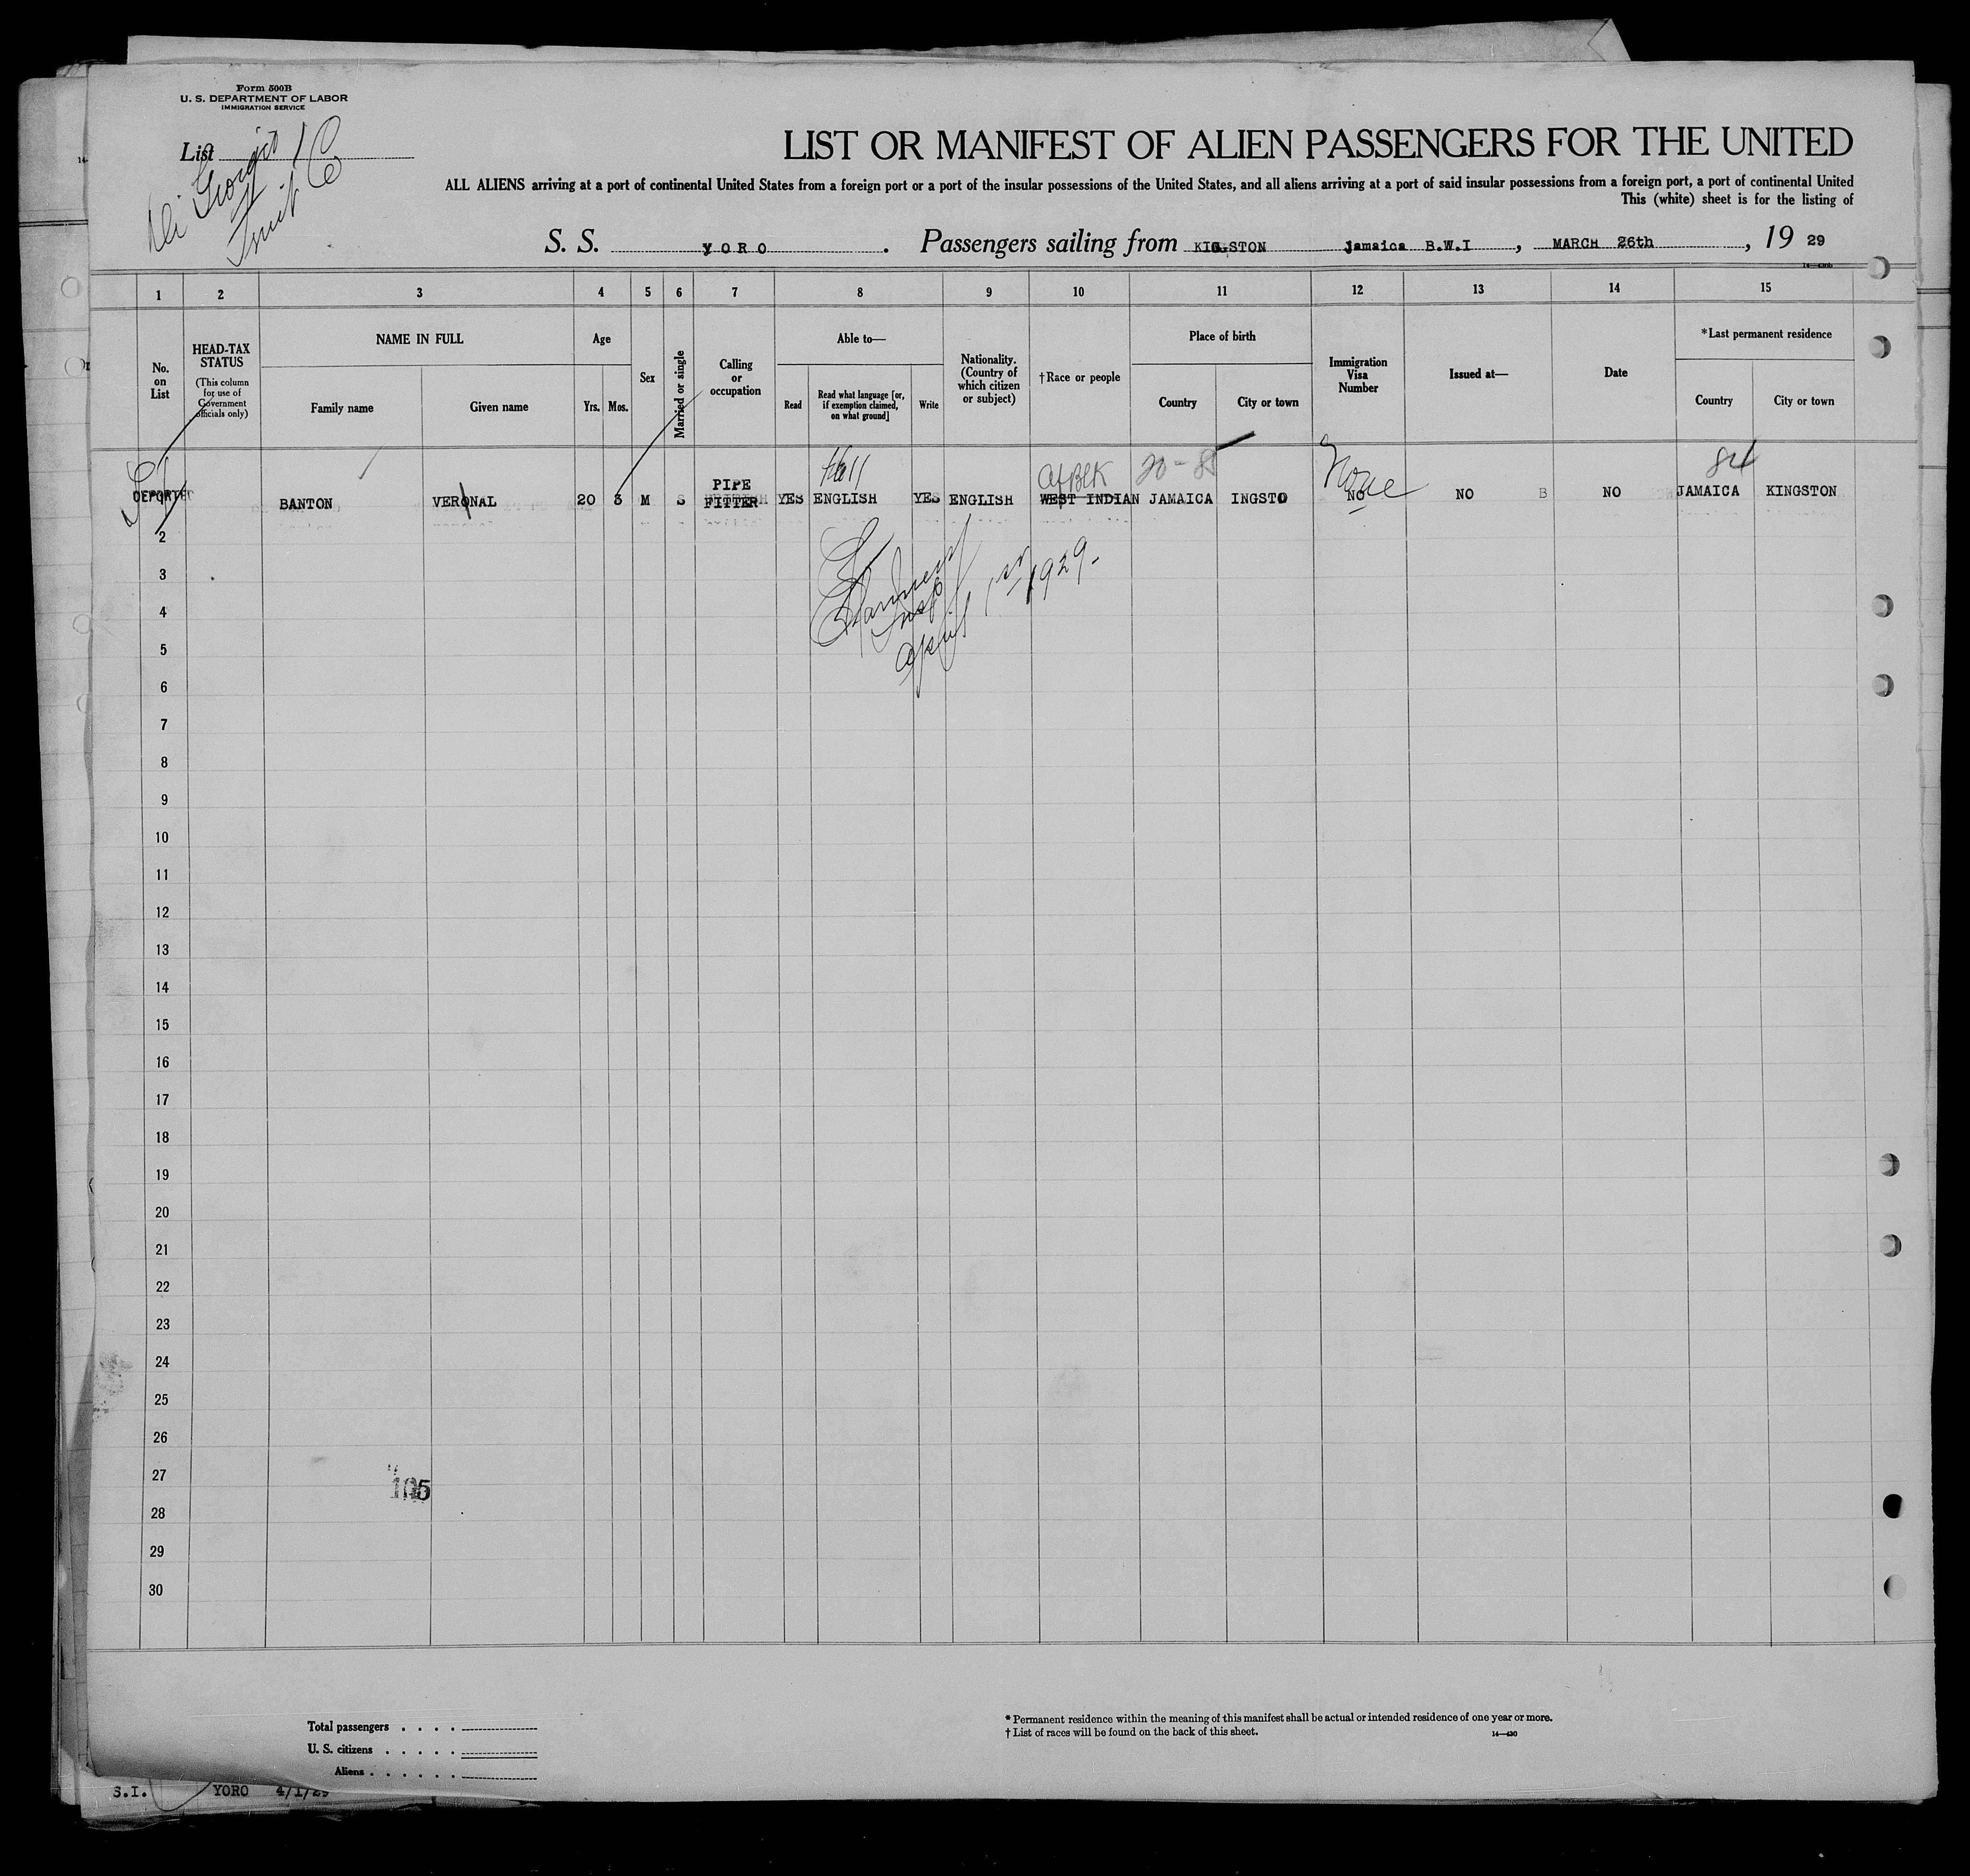 Form 500B
U. S. DEPARTMENT OF LABOR
IMMIGRATION SERVICE
List 1
Di Giorgio
Fruit Co
LIST OR MANIFEST OF ALIEN PASSENGERS FOR THE UNITED
ALL ALIENS arriving at a port of continental United States from a foreign port or a port of the insular possessions of the United States, and all aliens arriving at a port of said insular possessions from a foreign port, a port of continental United
This (white) sheet is for the listing of
S. S. YORO. Passengers sailing from KIGSTON Jamaica B.W.I, MARCH 26th, 19 29
1 2 3 4 5 6 7 8 9 10 11 12 13 14 15
No. on List
HEAD-TAX STATUS
(This column for use of Government officials only)
NAME IN FULL
Family name
Given name
Age
Yrs.
Mos.
Sex
Married or single
Calling or occupation
Able to—
Read
Read what language [or, if exemption claimed, on what ground]
Write
Nationality. (Country of which citizen or subject)
†Race or people
Place of birth
Country
City or town
Immigration Visa Number
Issued at—
Date
*Last permanent residence
Country
City or town
Af Blk 20-8 None 84
DEPORTED BANTON VERONAL 20 3 M S PIPE FITTER YES ENGLISH YES ENGLISH WEST INDIAN JAMAICA INGSTO NO NO B NO JAMAICA KINGSTON
2
3
Insp
April 1st 1929.
4
5
6
7
8
9
10
11
12
13
14
15
16
17
18
19
20
21
22
23
24
25
26
27
105
28
29
30
Total passengers . . . .
U. S. citizens . . . . .
Aliens . . . . . .
* Permanent residence within the meaning of this manifest shall be actual or intended residence of one year or more.
† List of races will be found on the back of this sheet.
14—430
S.I. YORO 4/1/29